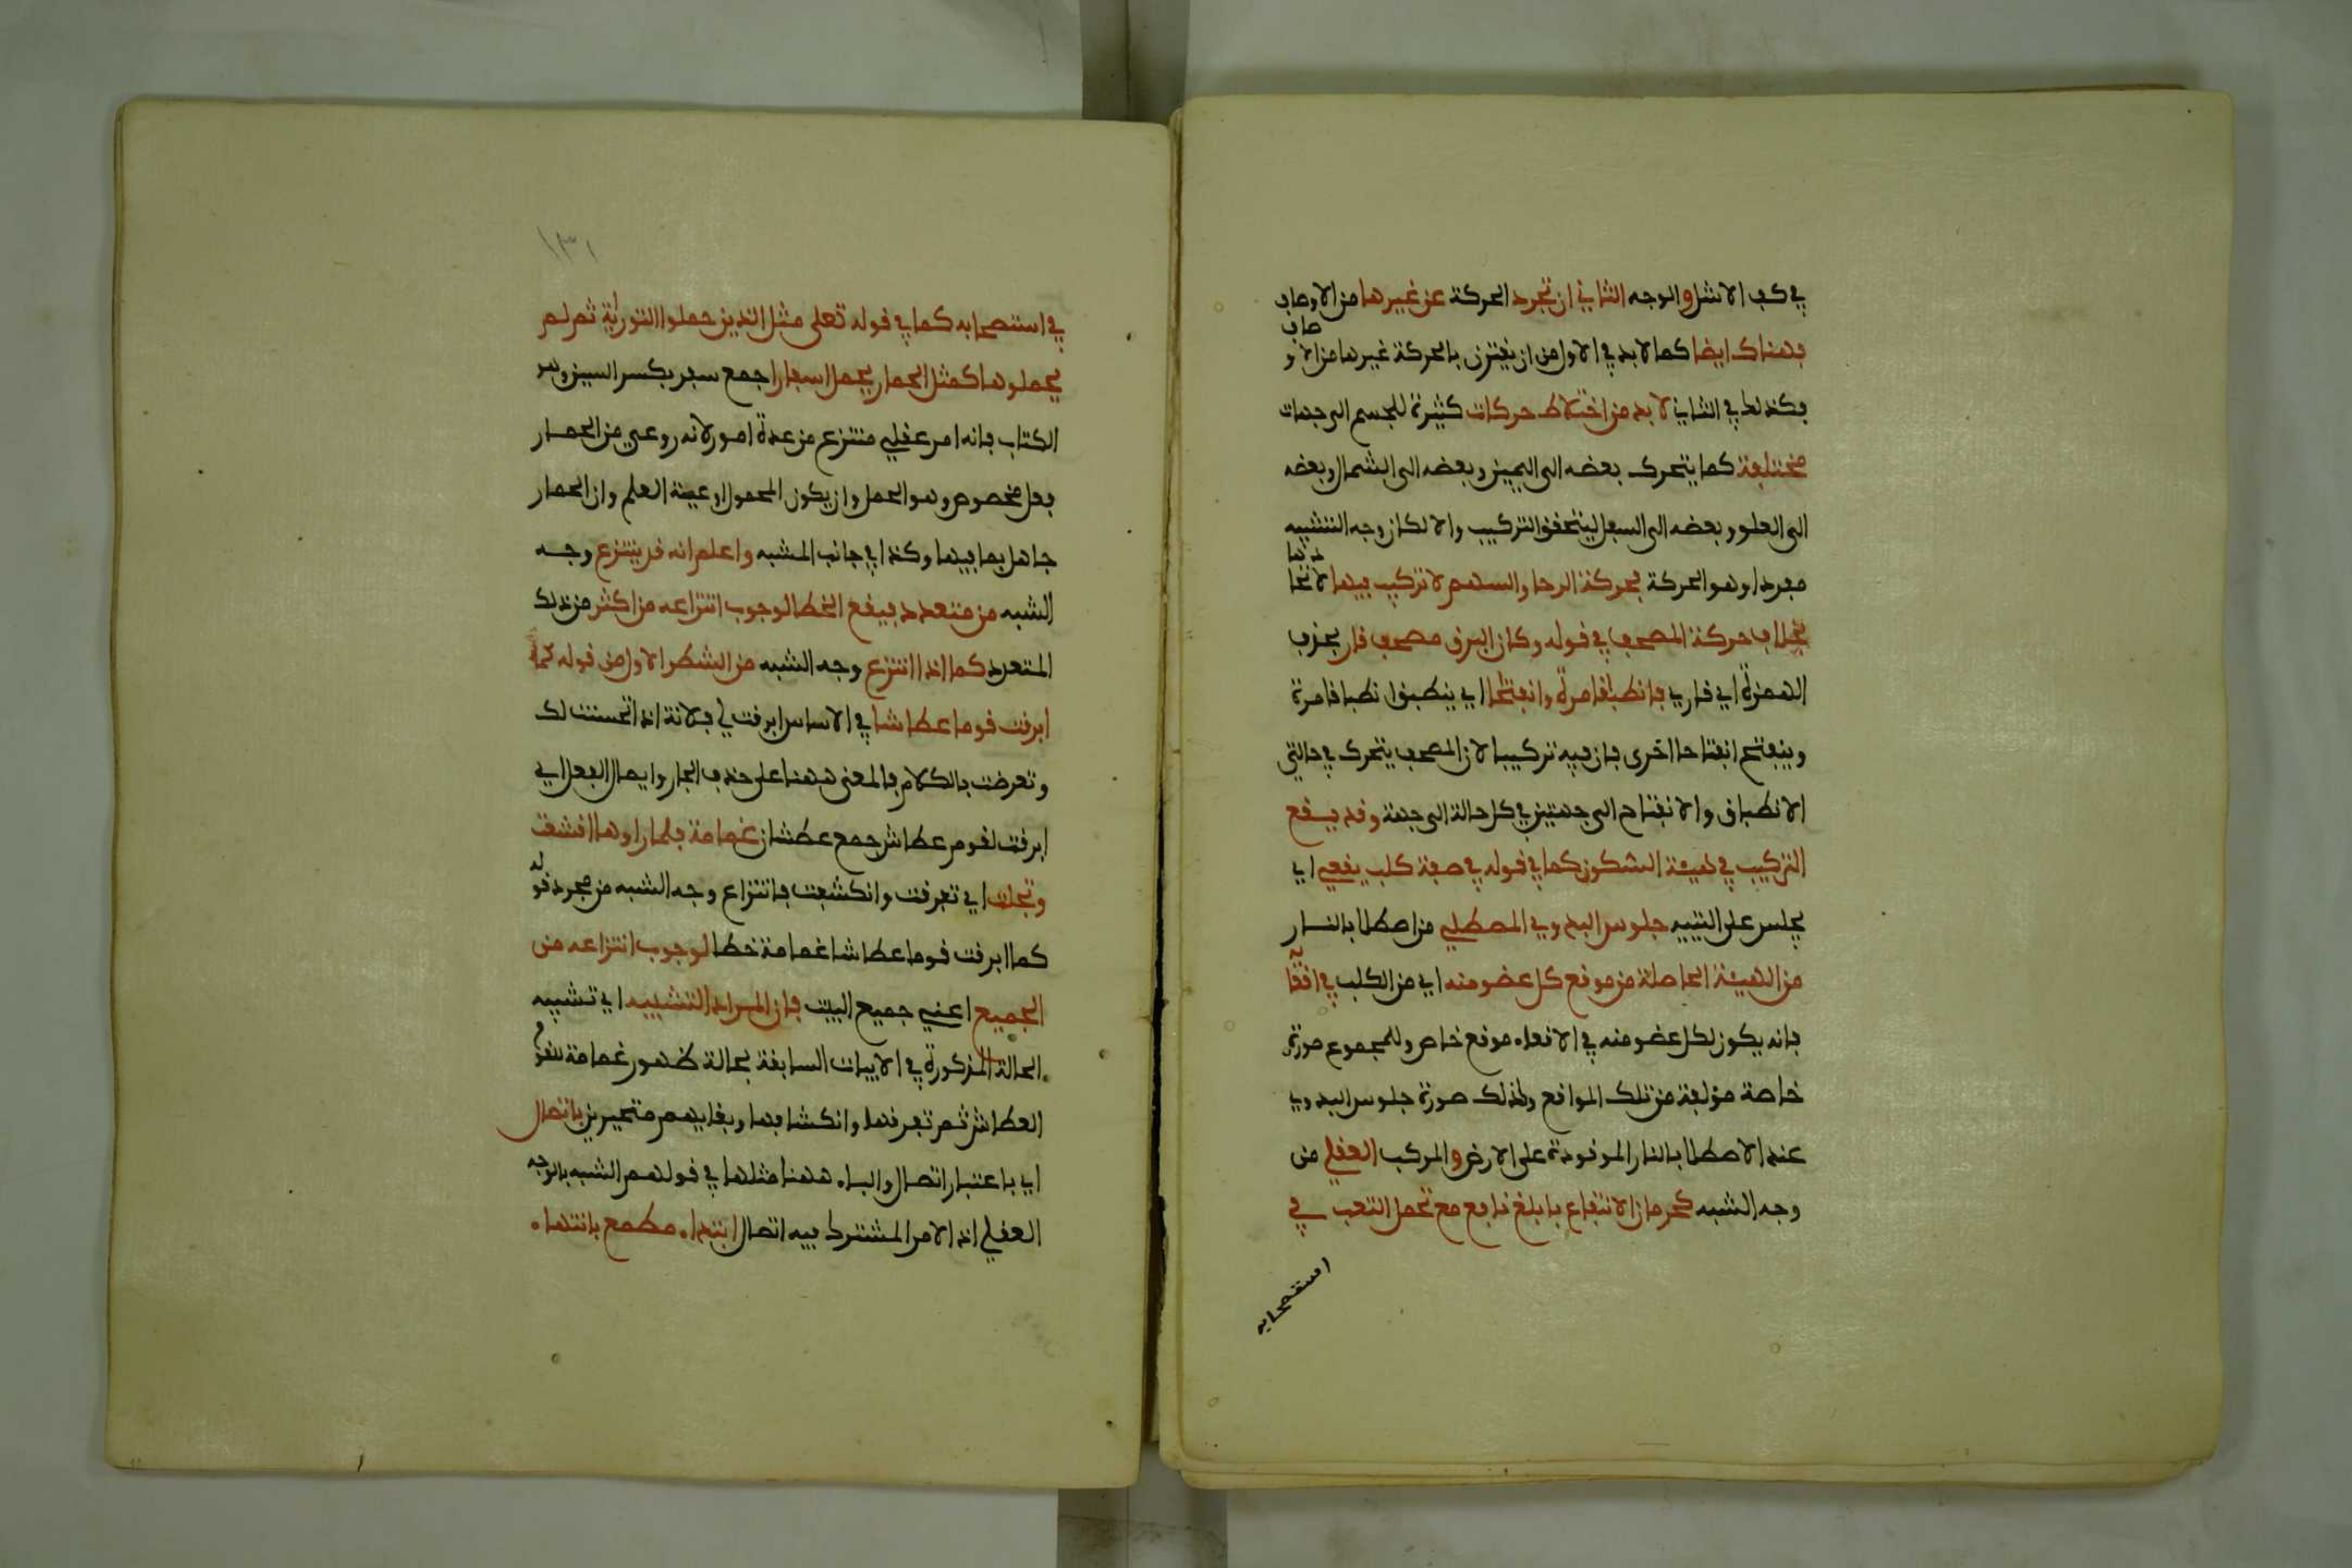 في كف الاشل والوجه الثاني ان تجرد الحركة عن غيرها من الاوصاف
فهناك ايضا كما لابد في الاول من ان يقترن بالحركة غيرها من الاوصاف
فكذلك في الثاني لا بد من اختلاط حركات كثيرة للجسم الى جهات
مختلفة كما يتحرك بعضه الى اليمين وبعضه الى الشمال وبعضه
الى العلو وبعضه الى السفل ليتحقق التركيب والا لكان وجه التشبيه
مفردا وهو الحركة فحركة الرحا والسهم لا تركيب فيها لاتحادها
بخلاف حركة المصحف في قوله وكان البرق مصحف قار بحذف
الهمزة اي قاري فانطباقا مرة وانفتاحا اي ينطبق انطباقا مرة
وينفتح انفتاحا اخرى فان فيه تركيبا لان المصحف يتحرك في حالتي
الانطباق والانفتاح الى جهتين في كل حالة الى جهة وقد يقع
التركيب في هيئة السكون كما في قوله في صفة كلب يقعي اي
يجلس على اليتيه جلوس البدوي المصطلي من اصطلا بالنار
من الهيئة الحاصلة من موقع كل عضو منه اي من الكلب في اقعايه
فانه يكون لكل عضو منه في الاقعاء موقع خاص وللمجموع صورة
خاصة مؤلفة من تلك المواقع ولذلك صورة جلوس البدوي
عند الاصطلا بالنار الموقودة على الارض والمركب العقلي من
وجه الشبه كحرمان الانتفاع بابلغ نافع مع تحمل التعب في
استصحابه
١٣١
في استصحابه كما في قوله تعلى مثل الذين حملوا التورية ثم لم
يحملوها كمثل الحمار يحمل اسفارا جمع سفر بكسر السين وهو
الكتاب فانه امر عقلي منتزع من عدة امور لانه روعي من الحمار
فعل مخصوص وهو الحمل وان يكون المحمول اوعية العلم وان الحمار
جاهل بما فيها وكذا في جانب المشبه واعلم انه قد ينتزع وجه
الشبه من متعدد فيقع الخطا لوجوب انتزاعه من اكثر من ذلك
المتعدد كما اذا انتزع وجه الشبه من الشطر الاول من قوله كما
ابرقت قوما عطاشا في الاساس ابرقت لي فلانة اذا تحسنت لك
وتعرضت بالكلام فالمعنى ههنا على حذف الجار وايصال الفعل اي
ابرقت لقوم عطاش جمع عطشان غمامة فلما راوها اقشعت
وتجلت اي تفرقت وانكشفت فانتزاع وجه الشبه من مجرد قوله
كما ابرقت قوما عطاشا غمامة خطا لوجوب انتزاعه من
الجميع اعني جميع البيت فان المراد التشبيه اي تشبيه
الحالة المذكورة في الابيات السابقة بحالة ظهور غمامة لقوم
العطاش ثم تفرقها وانكشافها وبقايهم متحيرين باتصال
اي باعتبار اتصال والباء ههنا مثلها في قولهم الشبه بالوجه
العقلي اذ الامر المشترك فيه اتصال ابتداء مطمع بانتهاء